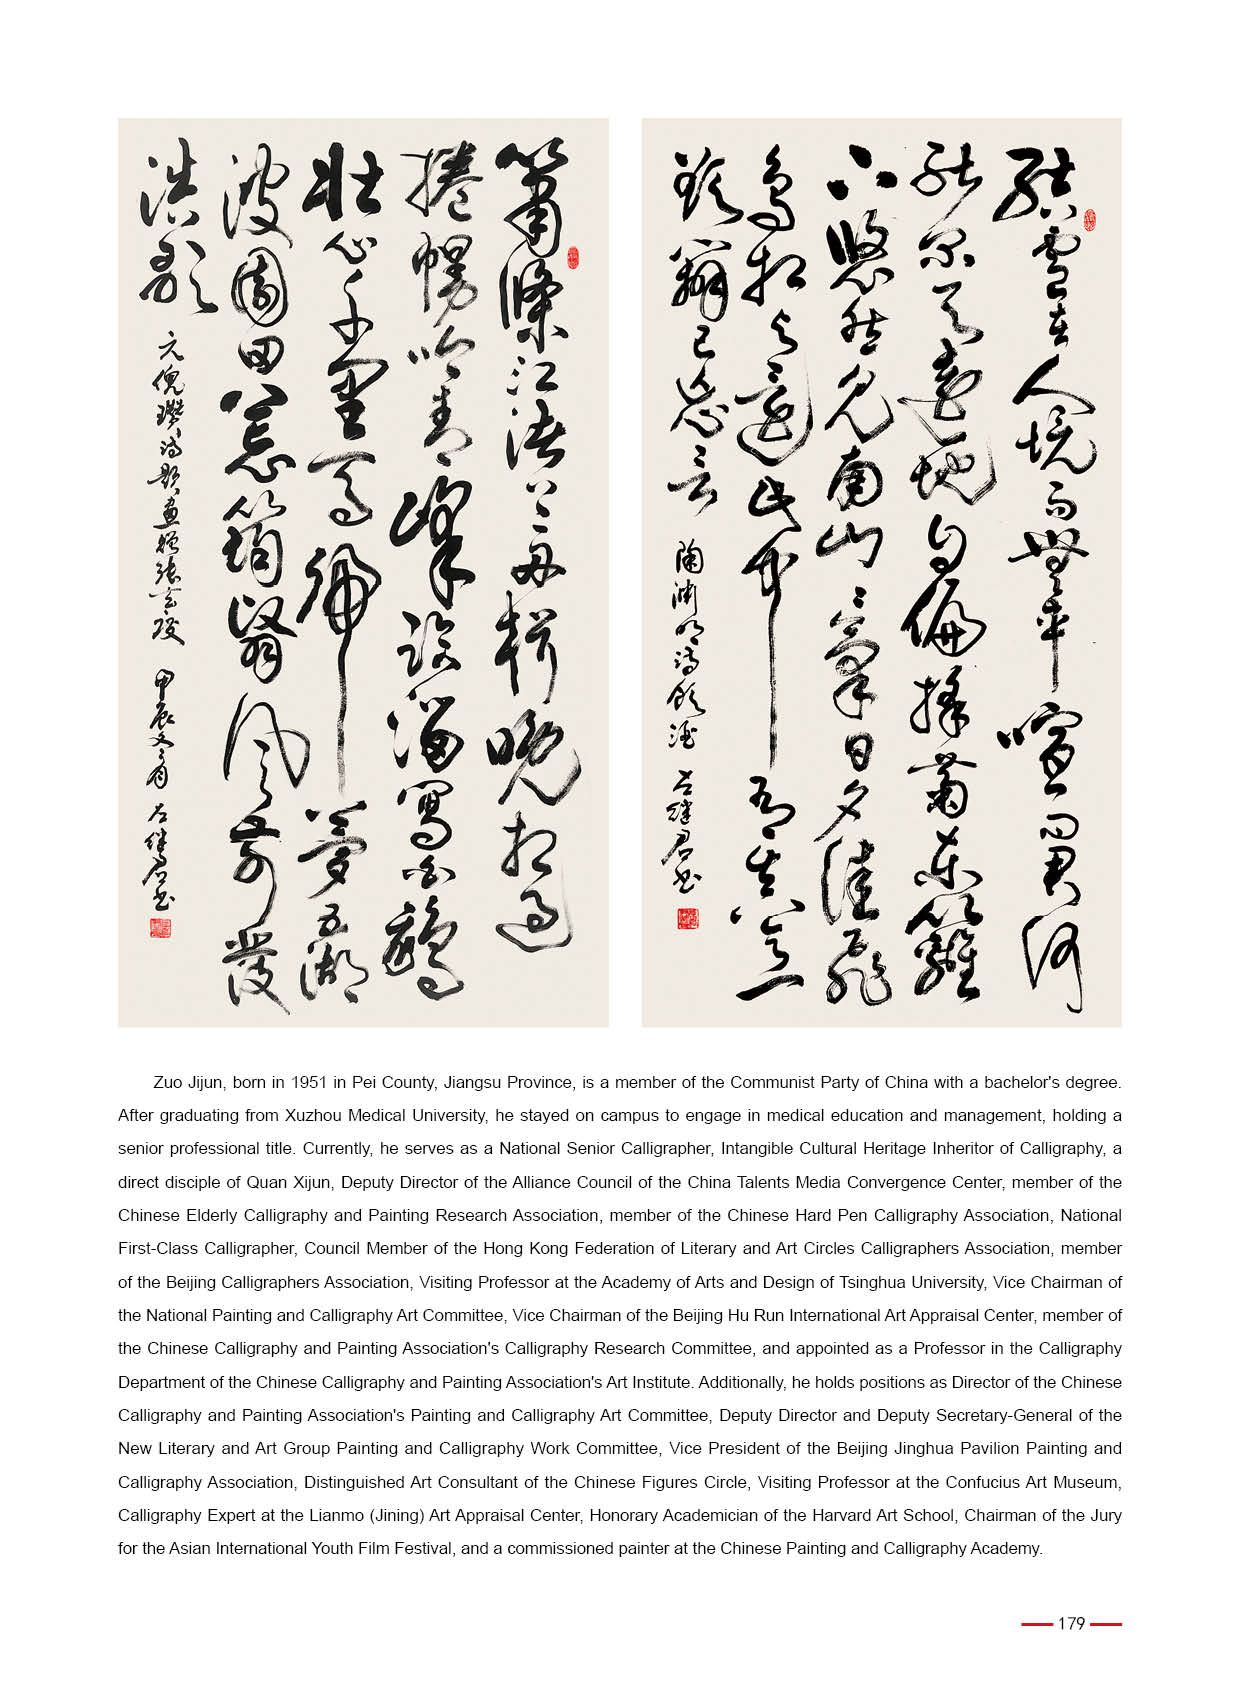 結廬在人境而無車喧問君何
能爾心遠地自偏採菊東籬
下悠然見南山〻氣日夕佳飛
鳥相與還此中有真意
欲辯已忘言 陶淵明詩飲酒 左継君書
蕭條江渚上舟楫晚相過
捲幔吟青峰臨溜寫白鵝
壯心千里馬歸夢五湖
波園田荒筠翳風前發
浩歌 元倪瓚詩題畫贈張玄度 甲辰 左継君書
Zuo Jijun, born in 1951 in Pei County, Jiangsu Province, is a member of the Communist Party of China with a bachelor's degree.
After graduating from Xuzhou Medical University, he stayed on campus to engage in medical education and management, holding a
senior professional title. Currently, he serves as a National Senior Calligrapher, Intangible Cultural Heritage Inheritor of Calligraphy, a
direct disciple of Quan Xijun, Deputy Director of the Alliance Council of the China Talents Media Convergence Center, member of the
Chinese Elderly Calligraphy and Painting Research Association, member of the Chinese Hard Pen Calligraphy Association, National
First-Class Calligrapher, Council Member of the Hong Kong Federation of Literary and Art Circles Calligraphers Association, member
of the Beijing Calligraphers Association, Visiting Professor at the Academy of Arts and Design of Tsinghua University, Vice Chairman of
the National Painting and Calligraphy Art Committee, Vice Chairman of the Beijing Hu Run International Art Appraisal Center, member of
the Chinese Calligraphy and Painting Association's Calligraphy Research Committee, and appointed as a Professor in the Calligraphy
Department of the Chinese Calligraphy and Painting Association's Art Institute. Additionally, he holds positions as Director of the Chinese
Calligraphy and Painting Association's Painting and Calligraphy Art Committee, Deputy Director and Deputy Secretary-General of the
New Literary and Art Group Painting and Calligraphy Work Committee, Vice President of the Beijing Jinghua Pavilion Painting and
Calligraphy Association, Distinguished Art Consultant of the Chinese Figures Circle, Visiting Professor at the Confucius Art Museum,
Calligraphy Expert at the Lianmo (Jining) Art Appraisal Center, Honorary Academician of the Harvard Art School, Chairman of the Jury
for the Asian International Youth Film Festival, and a commissioned painter at the Chinese Painting and Calligraphy Academy.
179